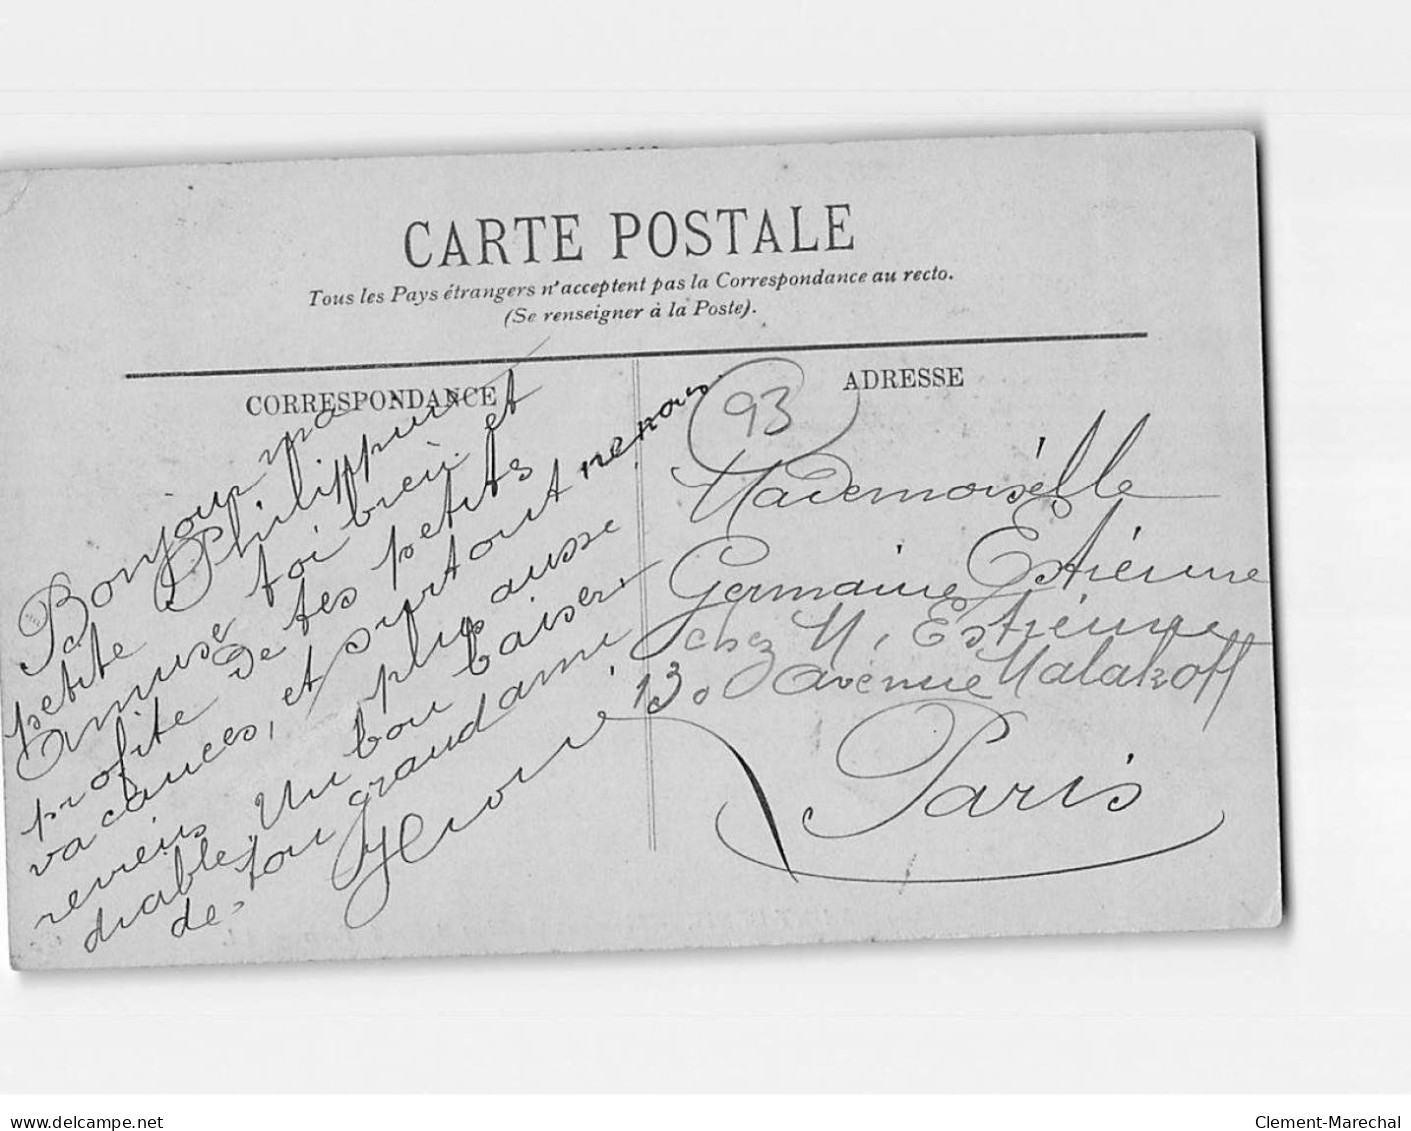 CARTE POSTALE
Tous les Pays étrangers n'acceptent pas la Correspondance au recto.
(Se renseigner à la Poste).
CORRESPONDANCE
Bonjour ma
petite Philippine
Amuse toi bien et
profite de tes petits
vacances, et surtout ne nous
reviens plus aussi
diable. Un bon baiser
de ton grand ami
ADRESSE
93
Mademoiselle
Germaine Estienne
chez M. Estienne
130 avenue Malakoff
Paris
www.delcampe.net
Clement-Marechal